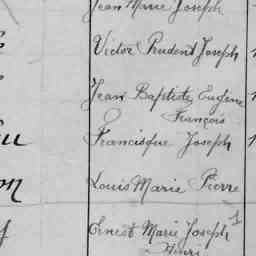 Jean Marie Joseph
Victor Prudent Joseph
Jean Baptiste Eugène
François
Francisque Joseph
Louis Marie Pierre
Ernest Marie Joseph
Henri